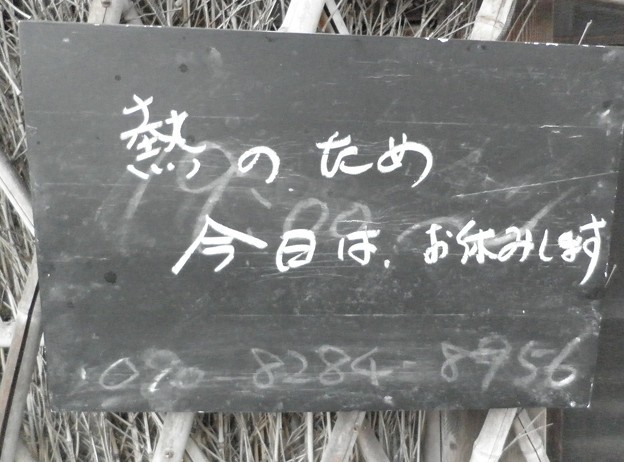 熱のため
今日は、お休みします
19:00
090-8284-8956